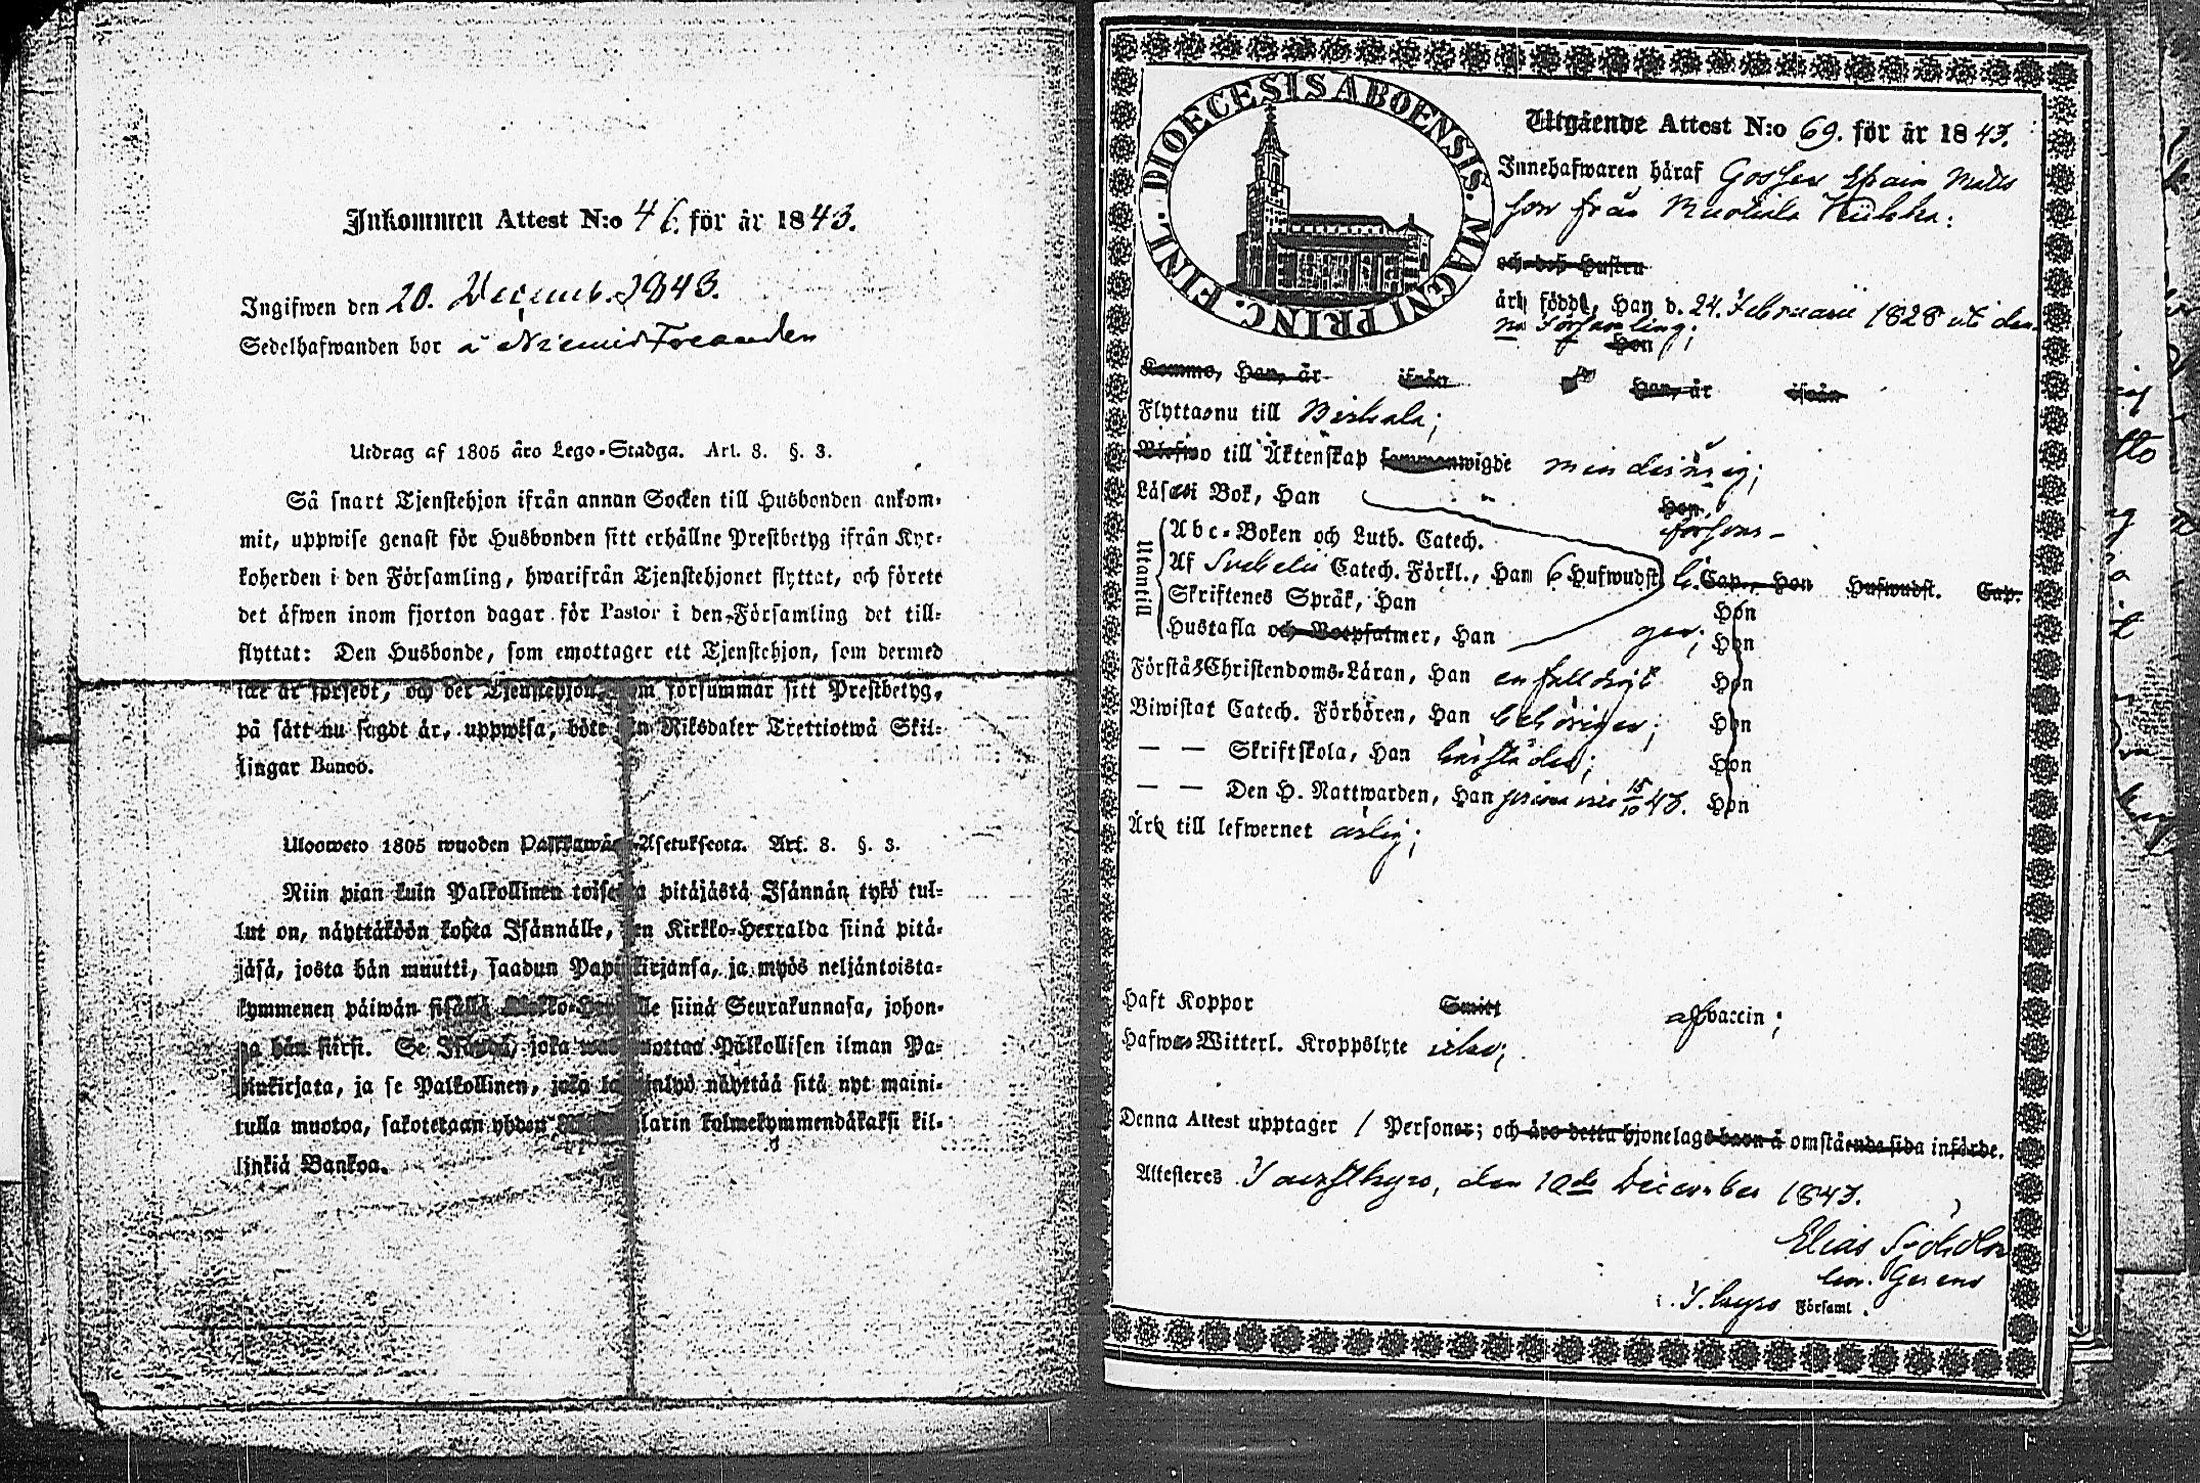 Inkommen Attest N:o 46. för år 1843.
Ingifwen den 20. Decemb. 1843.
Sedelhafwanden bor å
Utdrag af 1805 åro Lego-Stadga. Art. 8. §. 3.
Så snart Tjenstehjon ifrån annan Socken till Husbonden ankom-
mit, uppwise genast för Husbonden sitt erhållne Prestbetyg ifrån Kyr-
koherden i den Församling, hwarifrån Tjenstehjonet flyttat, och förete
det äfwen inom fjorton dagar för Pastor i den Församling det till-
flyttat: Den Husbonde, som emottager ett Tjenstehjon, som dermed
icke är försedt, och det Tjenstehjon, som försummar sitt Prestbetyg,
på sätt nu sagdt är, uppwisa, böte en Riksdaler Trettiotwå Skil-
lingar Banco.
Uloosweto 1805 wuoden Palkkawäen-Asetuksesta. Art. 8. §. 3.
Niin pian kuin Palkollinen toisesta pitäjästä Isännän tykö tul-
lut on, näyttäköön kohta Isännälle, sen Kirkko-Herralda siinä pitä-
jäsä, josta hän muutti, saadun Papinkirjansa, ja myös neljäntoista-
kymmenen päiwän sisällä Kirkko-Herralle siinä Seurakunnasa, johon-
ga hän siirsi. Se Isändä, joka wastaanottaa Palkollisen ilman Pa-
pinkirjata, ja se Palkollinen, joka näyttää sitä nyt maini-
tulla muotoa, sakotetaan yhden Riksdalarin kolmekymmendäkaksi kil-
linkiä Bankoa.
DIOECESIS ABOENSIS. MAGNI PRINC. FINL.
Utgående Attest N:o 69. för år 1843.
Innehafwaren häraf Gossen Efraim Matts
son från Kuekka:
och deß Hustru
är född, Han d. 24. Februarii 1828 uti den-
na Församling; Hon
Komme, Han, är ifrån Han, är ifrån
Flyttas nu till Birkala;
till Äktenskap sammanwigde minderårig;
Läser i Bok, Han Hon,
Utantill
Abc-Boken och Luth. Catech. försvar-
Af Svebelii Catech. Förkl., Han 6 Hufwudst. 6. Cap., Hon Hufwudst. Cap.
Skriftenes Språk, Han Hon
Hustafla och Botpsalmer, Han gar; Hon
Förstår Christendoms-Läran, Han enfalldigt Hon
Biwistat Catech. Förhören, Han behörigen; Hon
— — Skriftskola, Han härstädes; Hon
— — Den H. Nattwarden, Han 15/10 43. Hon
Är till lefwernet ärlig;
Haft Koppor Smitt af vaccin;
Hafwer Witterl. Kroppslyte icke;
Denna Attest upptager 1 Personer; och äro detta hjonelags barn å omstående sida införde.
Attesteres Tavastkyro, den 10de December 1843.
Elias
Gerens
i T.kyro Församl.